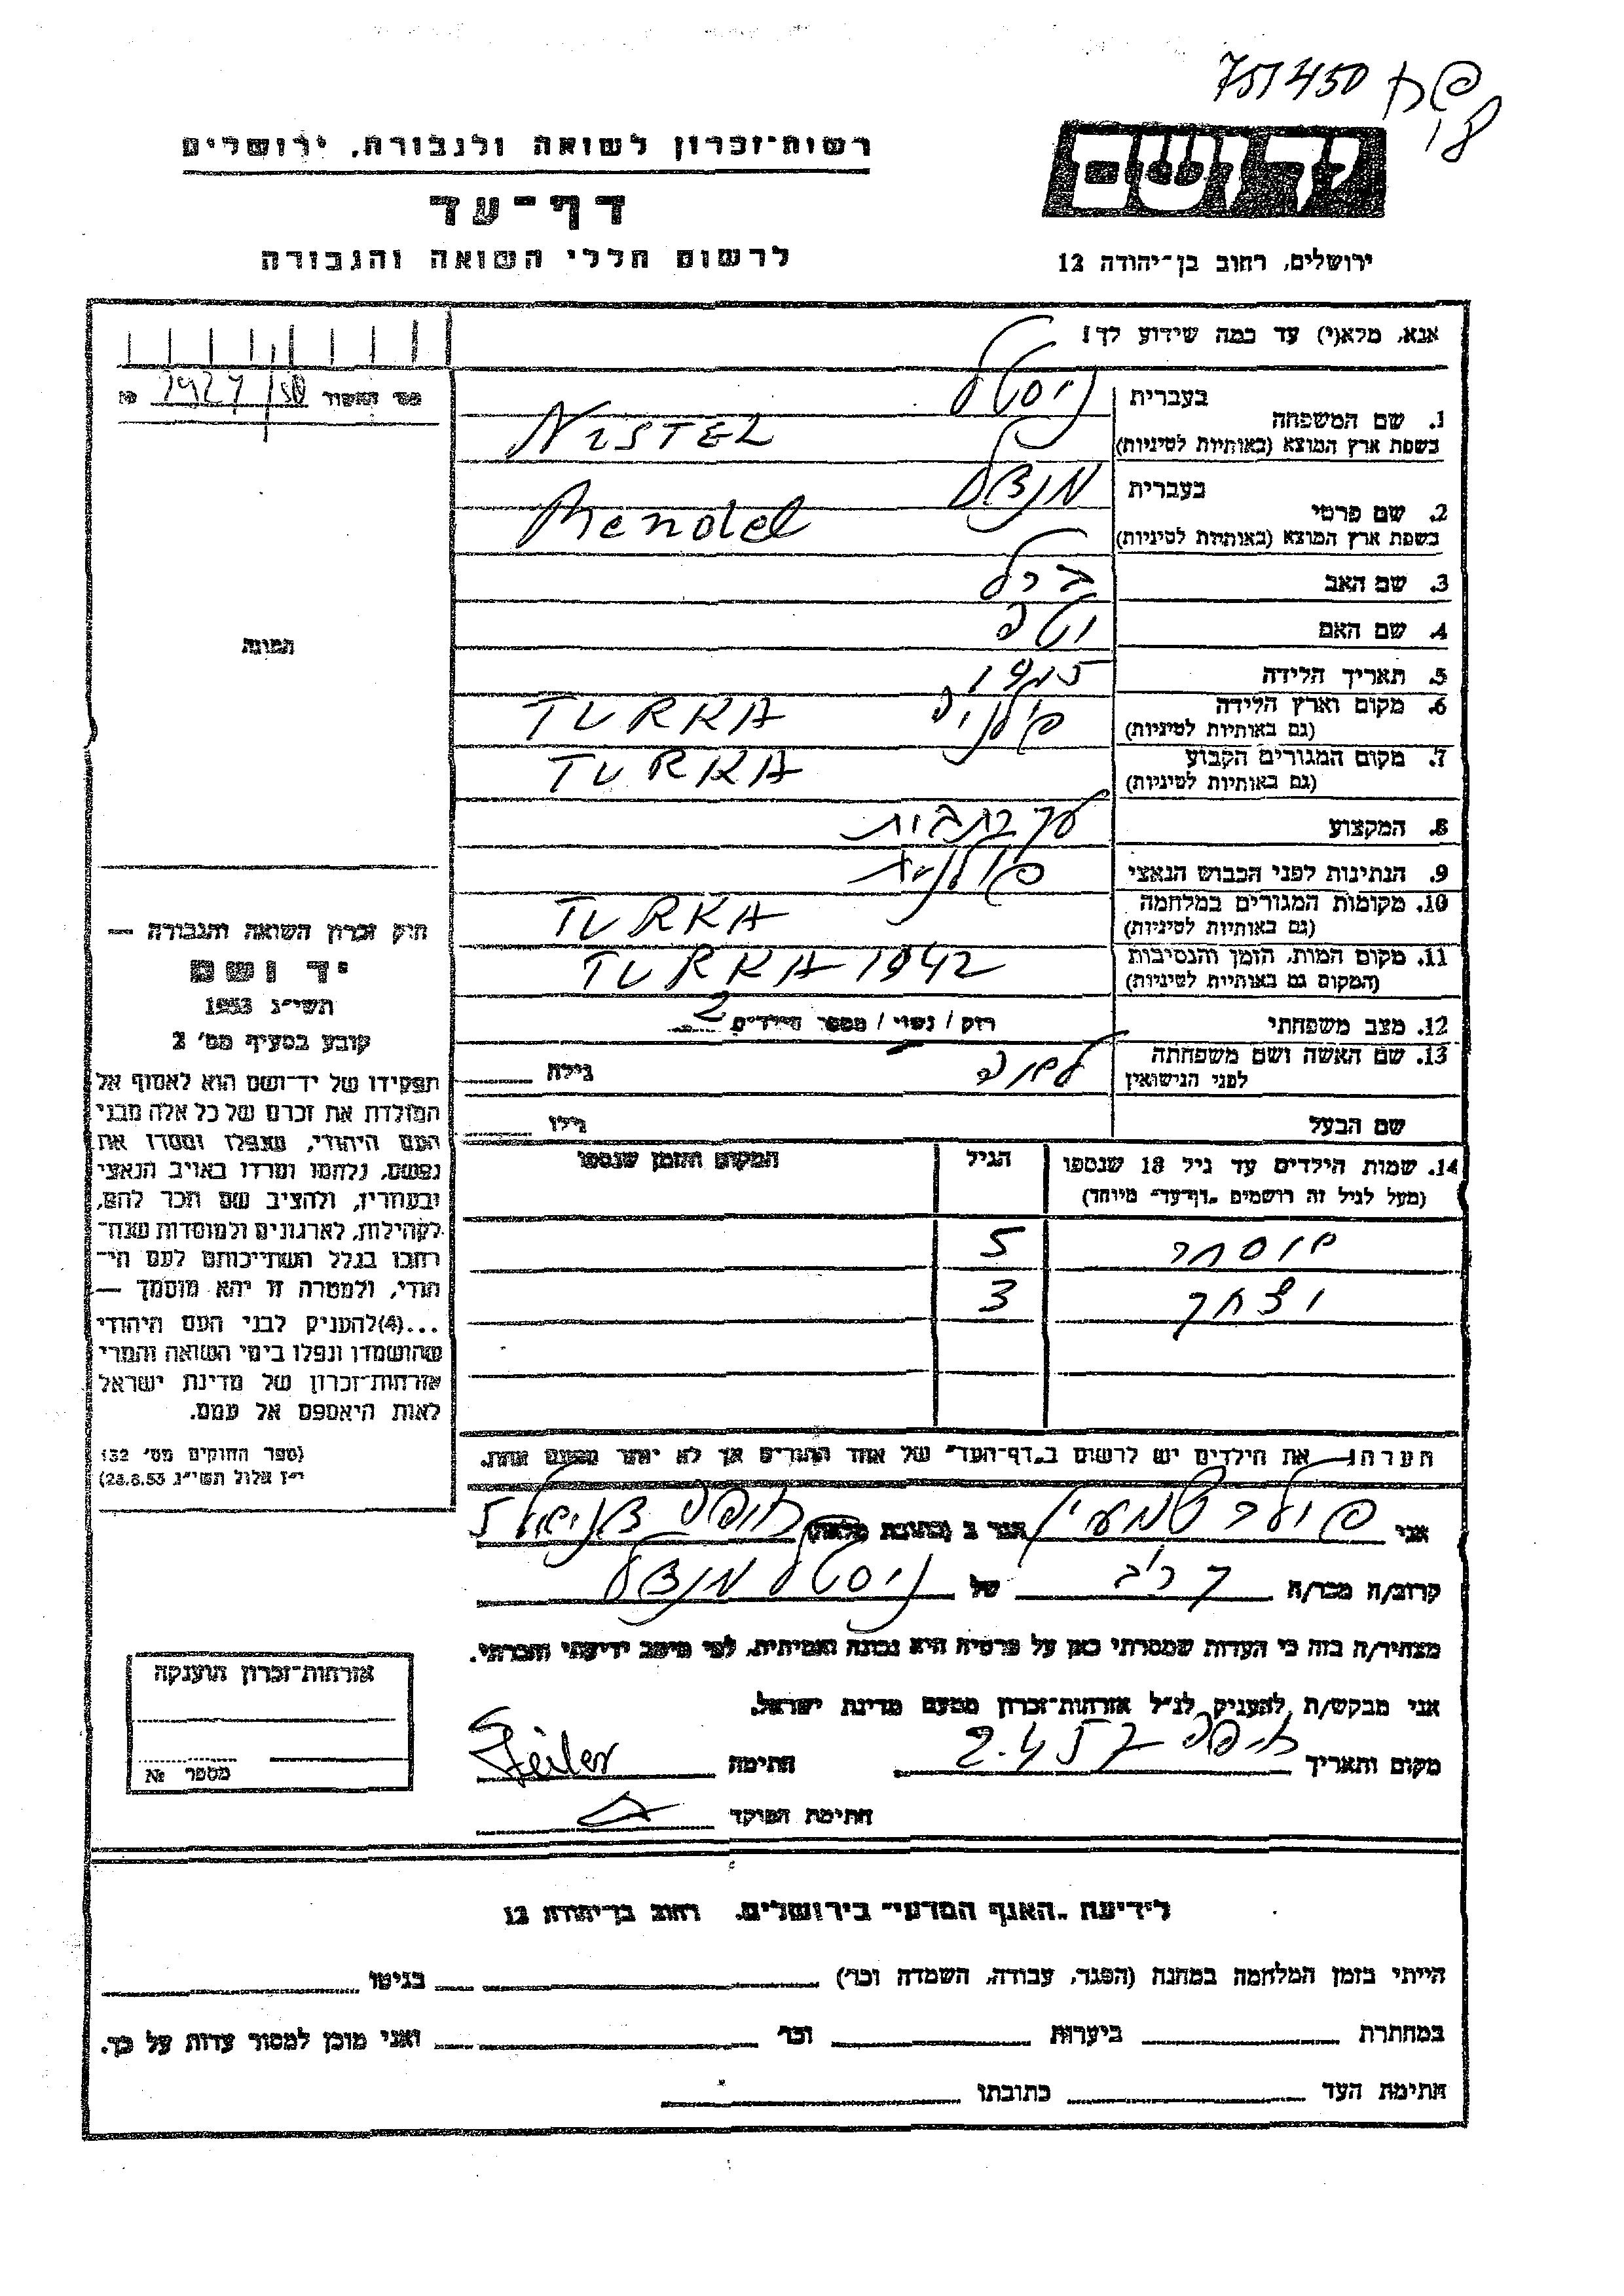 751450
רשות-זכרון לשואה ולגבורה, ירושלים
יד ושם
דף-עד
לרשום חללי השואה והגבורה
ירושלים, רחוב בן-יהודה 12
אנא, מלא(י) עד כמה שידוע לך!
1. שם המשפחה
בעברית ניסטל
בשפת ארץ המוצא (באותיות לטיניות) NISTEL
2. שם פרטי
בעברית מנדל
בשפת ארץ המוצא (באותיות לטיניות) Mendel
3. שם האב ברל
4. שם האם
5. תאריך הלידה 1915
6. מקום וארץ הלידה פולניה TURKA
(גם באותיות לטיניות)
7. מקום המגורים הקבוע TURKA
(גם באותיות לטיניות)
8. המקצוע
9. הנתינות לפני הכבוש הנאצי פולנית
10. מקומות המגורים במלחמה TURKA
(גם באותיות לטיניות)
11. מקום המות, הזמן והנסיבות TURKA 1942
(המקום גם באותיות לטיניות)
12. מצב משפחתי רוק / נשוי / מספר הילדים 2
13. שם האשה ושם משפחתה גילה
לפני הנישואין
שם הבעל גילו
14. שמות הילדים עד גיל 18 שנספו הגיל המקום והזמן שנספו
(מעל לגיל זה רושמים "דף-עד" מיוחד)
5
יצחק 3
הערה: את הילדים יש לרשום ב"דף-העד" של אחד ההורים אך לא יותר מפעם אחת.
אני הגר ב (כתובת מלאה) חיפה
קרוב/ה מכר/ה קרוב של ניסטל מנדל
מצהיר/ה בזה כי העדות שמסרתי כאן על פרטיה היא נכונה ואמיתית, לפי מיטב ידיעתי והכרתי.
אני מבקש/ת להעניק לנ"ל אזרחות-זכרון מטעם מדינת ישראל.
מקום ותאריך חיפה 2.4.57 חתימה Feiler
חתימת הפוקד
מס' האשור №
תמונה
חוק זכרון השואה והגבורה —
יד ושם
תשי"ג 1953
קובע בסעיף מס' 2
תפקידו של יד-ושם הוא לאסוף אל
המולדת את זכרם של כל אלה מבני
העם היהודי, שנפלו ומסרו את
נפשם, נלחמו ומרדו באויב הנאצי
ובעוזריו, ולהציב שם וזכר להם,
לקהילות, לארגונים ולמוסדות שנח-
רבו בגלל השתייכותם לעם הי-
הודי, ולמטרה זו יהא מוסמך —
...(4) להעניק לבני העם היהודי
שהושמדו ונפלו בימי השואה והמרי
אזרחות-זכרון של מדינת ישראל
לאות היאספם אל עמם.
(ספר החוקים מס' 132
י"ז אלול תשי"ג 28.8.53)
אזרחות-זכרון הוענקה
מספר №
לידיעת "האגף המדעי" בירושלים, רחוב בן-יהודה 12
הייתי בזמן המלחמה במחנה (הסגר, עבודה, השמדה וכו') בגיטו
במחתרת ביערות וכו' ואני מוכן למסור עדות על כך.
חתימת העד כתובתו